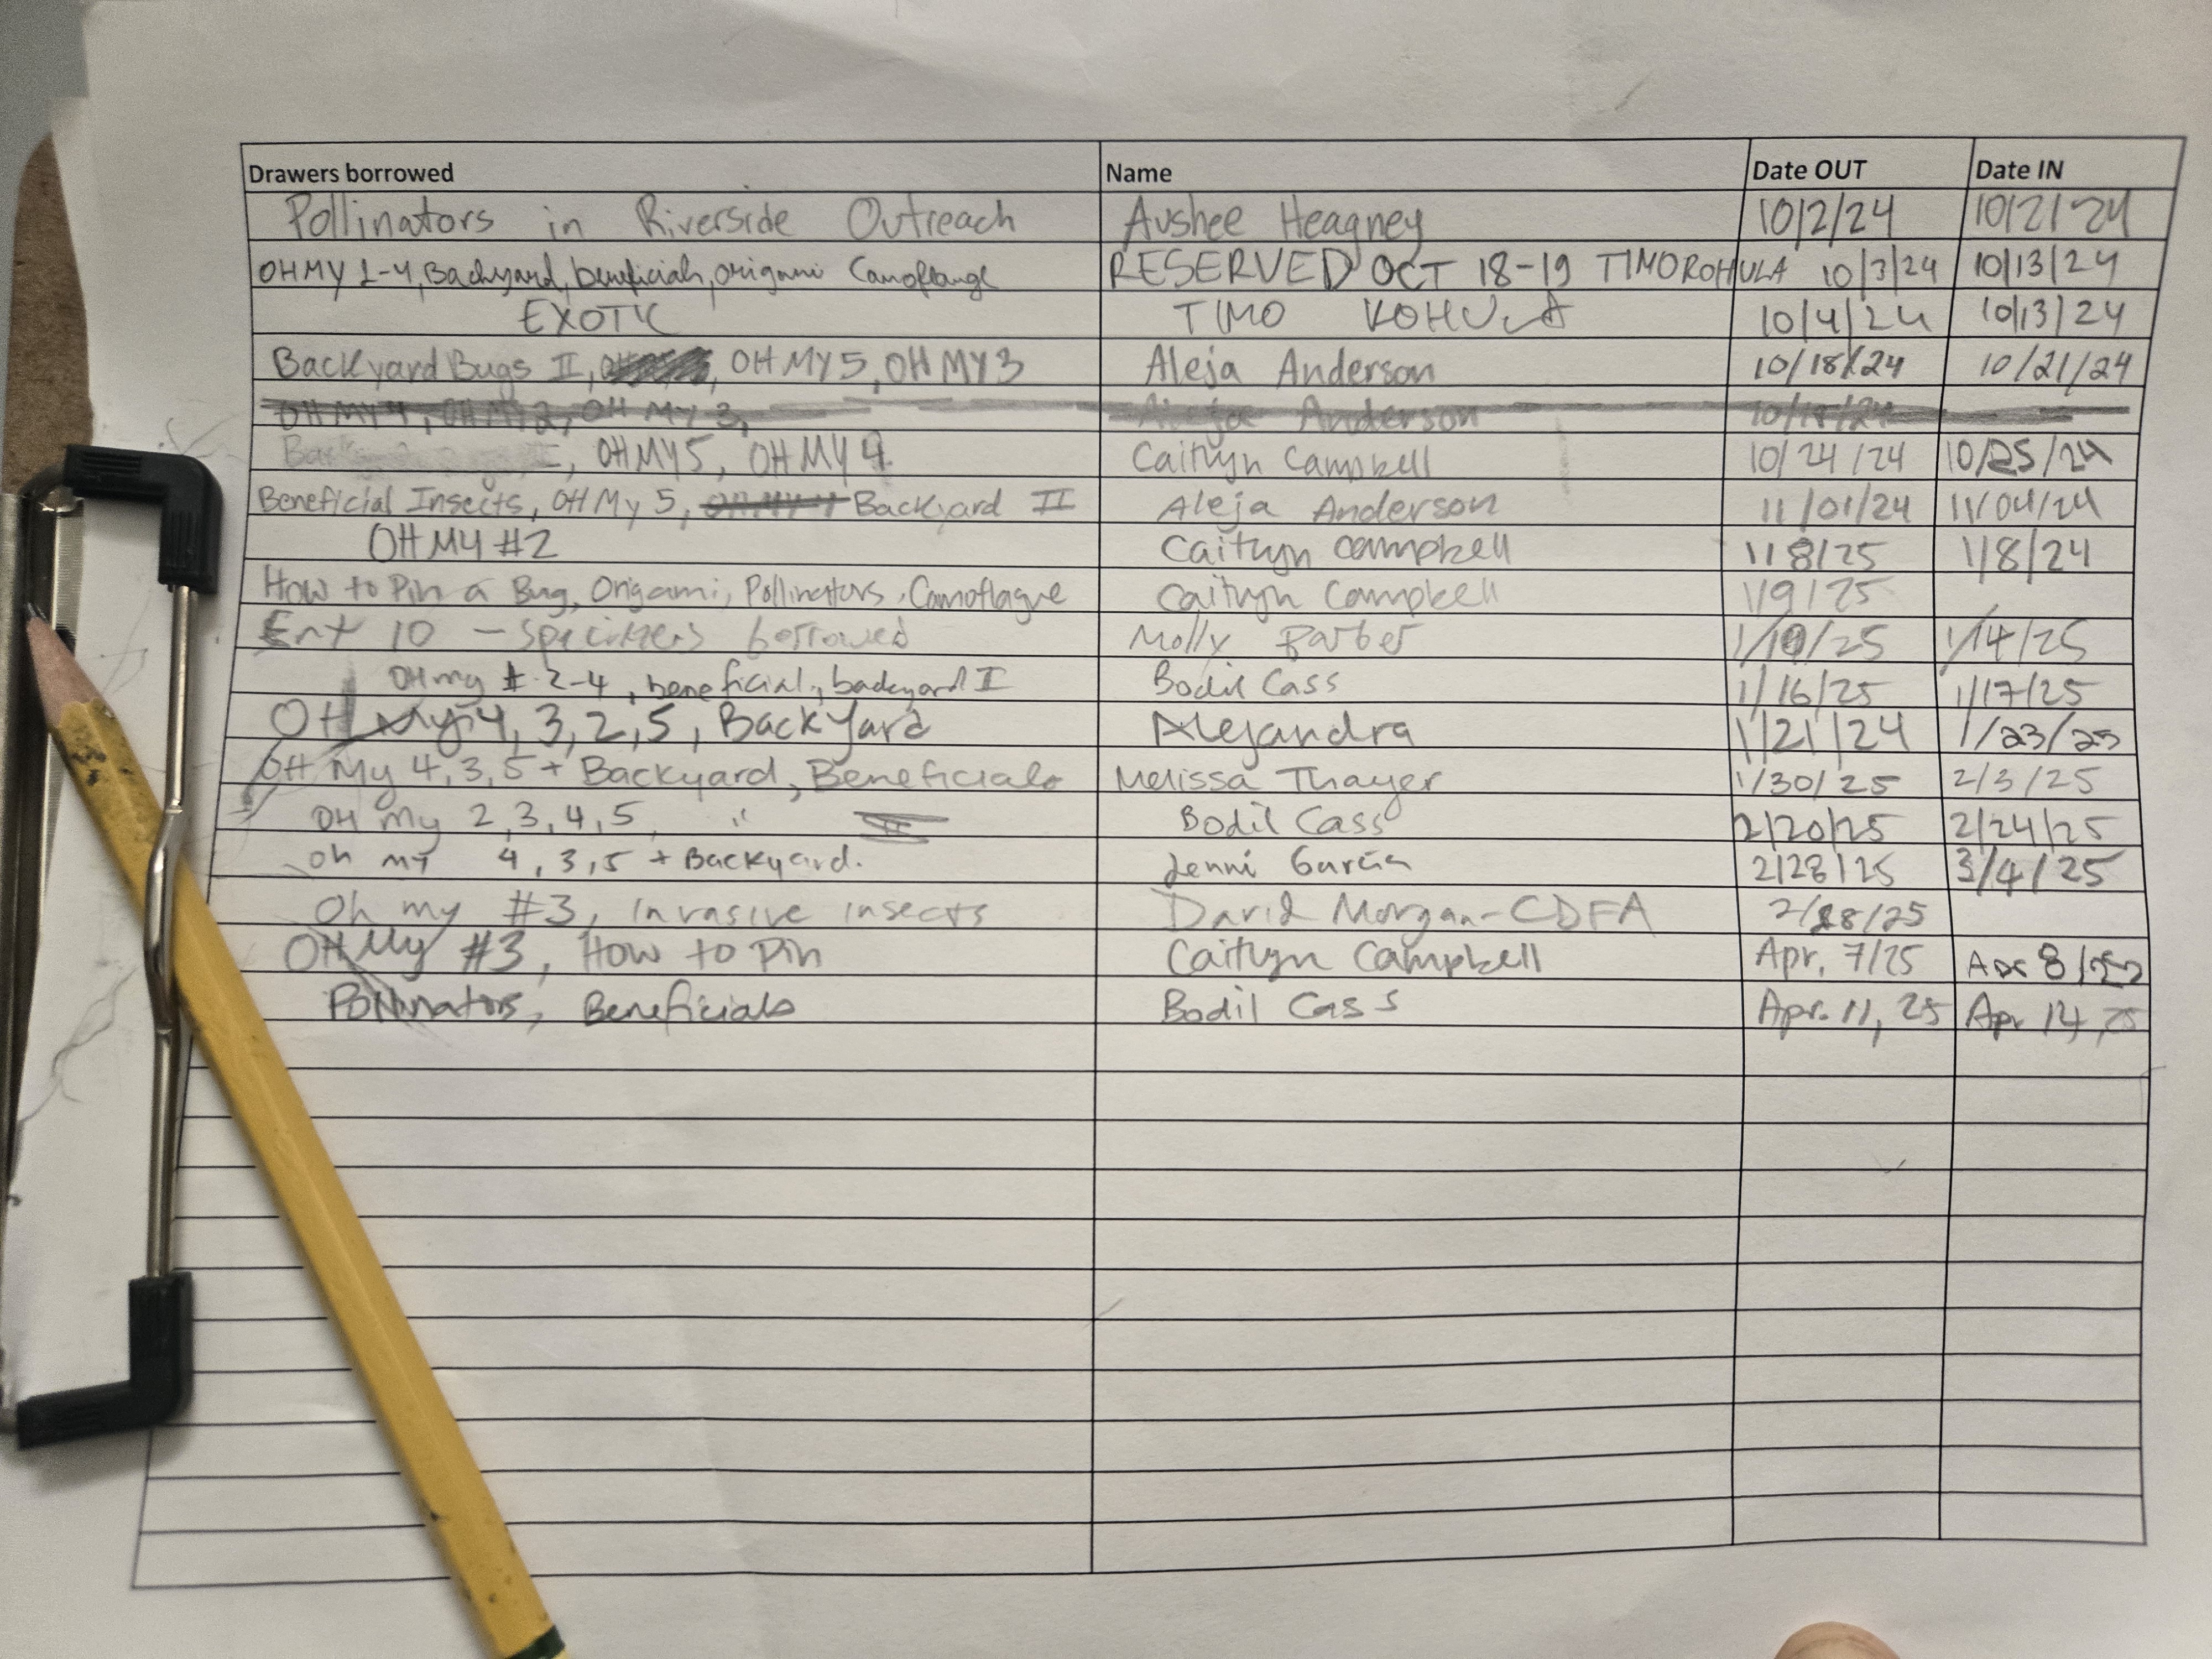 Drawers borrowed Name Date OUT Date IN
Pollinators in Riverside Outreach Avshee Heagney 10/2/24 10/2/24
OHMY 1-4, Backyard, beneficials, origami Camoflauge RESERVED OCT 18-19 TIMO ROHULA 10/3/24 10/13/24
EXOTIC TIMO 10/4/24 10/13/24
Backyard Bugs II, OH MY 5, OH MY 3 Aleja Anderson 10/18/24 10/21/24
OH MY 4, OH MY 2, OH MY 3, Aleja Anderson
OH MY 5, OH MY 4 Caitlyn Campbell 10/24/24 10/25/24
Beneficial Insects, OH My 5, Backyard II Aleja Anderson 11/01/24 11/04/24
OH MY #2 Caitlyn Campbell 1/8/25 1/8/24
How to Pin a Bug, Origami, Pollinators, Camoflague Caitlyn Campbell 1/9/25
Ent 10 - specimens borrowed Molly Barber 1/14/25
OH my # 2-4, beneficial, backyard I Bodil Cass 1/16/25 1/17/25
OH My 4, 3, 2, 5, BackYard Alejandra 1/21/24 1/23/25
OH My 4, 3, 5 + Backyard, Beneficials Melissa Thayer 1/30/25 2/3/25
OH my 2, 3, 4, 5, " Bodil Cass 2/20/25 2/24/25
oh my 4, 3, 5 + Backyard. Jenni Garcia 2/28/25 3/4/25
Oh my #3, invasive insects David Morgan-CDFA 2/28/25
OH My #3, How to Pin Caitlyn Campbell Apr. 7/25
Pollinators, Beneficials Bodil Cass Apr. 11, 25 Apr 14, 25